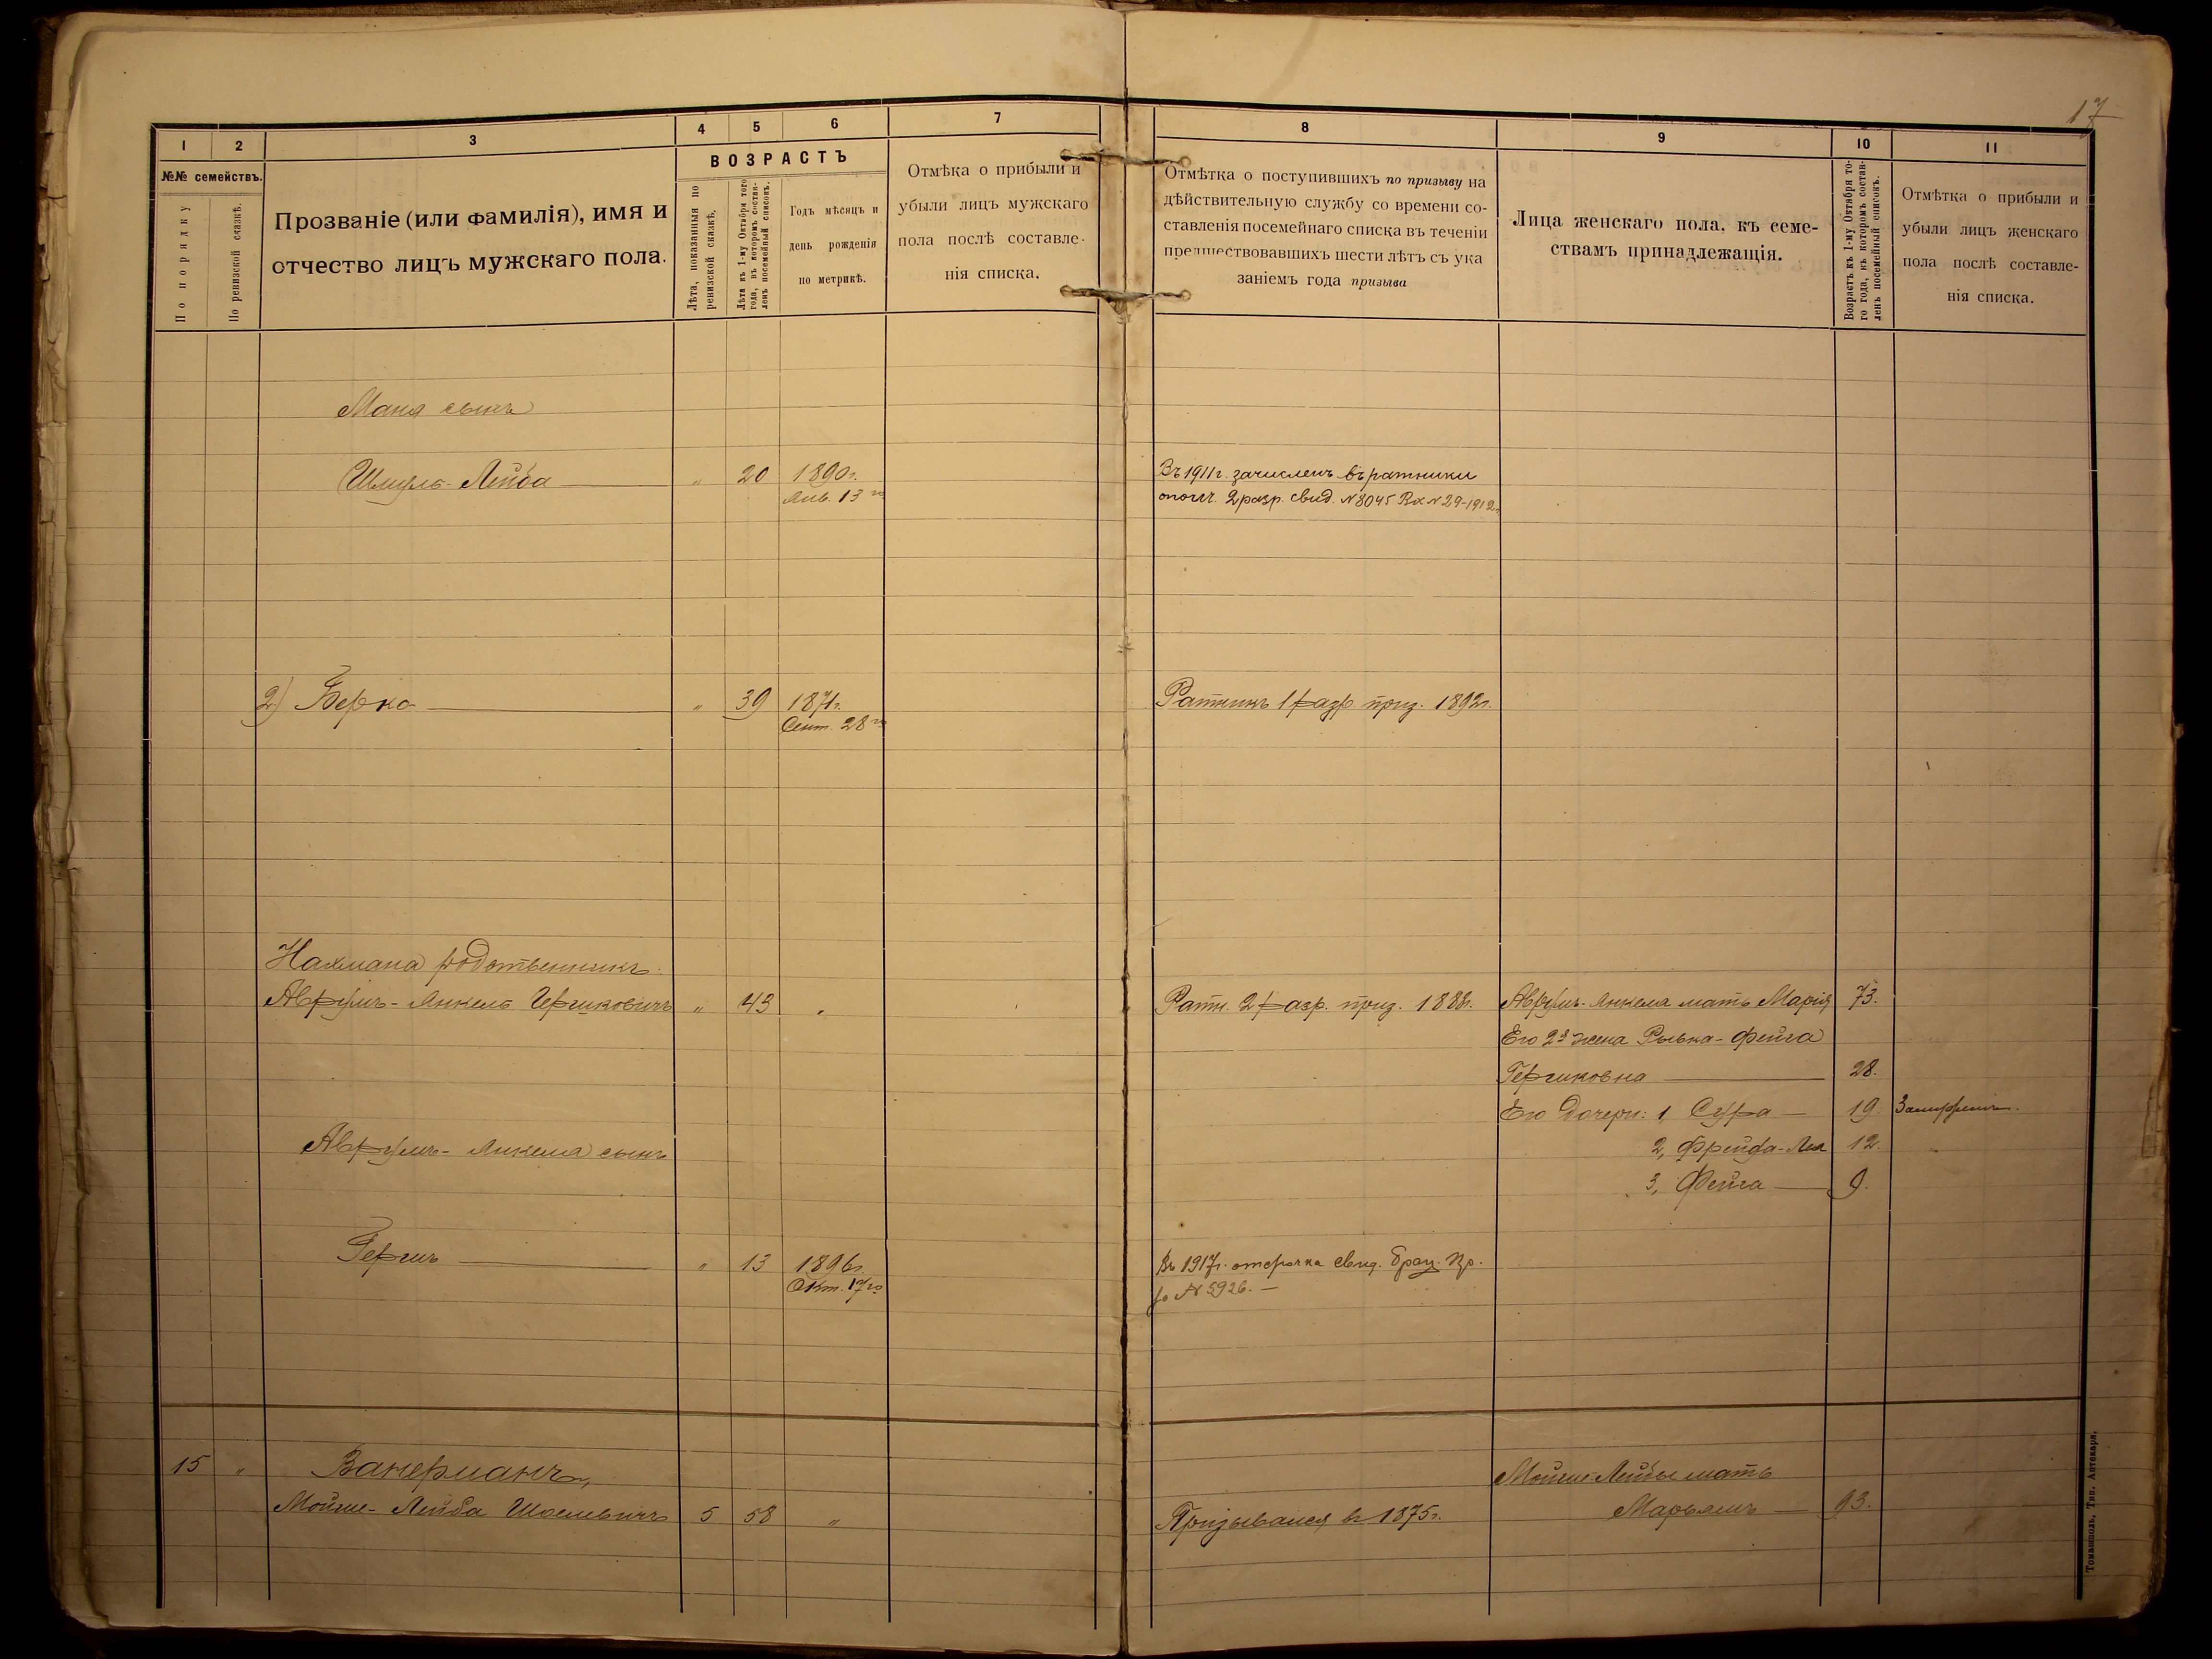 17
1 2 3 4 5 6 7
№№ семействъ.
По порядку
По ревизской сказкѣ.
Прозваніе (или фамилія), имя и
отчество лицъ мужскаго пола.
ВОЗРАСТЪ
Лѣта, показанныя по
ревизской сказкѣ.
Лѣта къ 1-му Октября того
года, въ которомъ состав-
ленъ посемейный списокъ.
Годъ мѣсяцъ и
день рожденія
по метрикѣ.
Отмѣка о прибыли и
убыли лицъ мужскаго
пола послѣ составле-
нія списка.
8 9 10 11
Отмѣтка о поступившихъ по призыву на
дѣйствительную службу со времени со-
ставленія посемейнаго списка въ теченіи
предшествовавшихъ шести лѣтъ съ ука
заніемъ года призыва
Лица женскаго пола, къ семе-
ствамъ принадлежащія.
Возрастъ къ 1-му Октября то-
го года, въ которомъ состав-
ленъ посемейный списокъ.
Отмѣтка о прибыли и
убыли лицъ женскаго
пола послѣ составле-
нія списка.
Маня сынъ
Шмуль-Лейба " 20 1890г.
Янв. 13го
Въ 1911г. зачисленъ въ ратники
ополч. 2 разр. свид. №8045 Вх №29-1912г.
2) Берко " 39 1871г.
Сент. 28го
Ратникъ 1 разр. приз. 1892г.
Нахмана родственникъ:
Аврумъ-Янкель Гершковичъ " 43 "
Ратн. 2 разр. приз. 1888г.
Аврумъ-Янкеля мать Марія 73.
Его 2я жена Рывка-Фейга
Гершковна 28.
Его дочери: 1, Сура 19
2, Фрейда-Лея 12.
3, Фейга 9.
Аврумъ-Янкеля сынъ
Гершъ " 13 1896г.
Окт. 17го
Въ 1917г. отсрочка свид. Брац. Пр.
№ 5926.
15 " Ванерманъ,
Мойше-Лейба Шоелевичъ 5 58 "
Призывался въ 1875г.
Мойше-Лейбы мать
Марьямъ 93.
Томашполь, Тип. Аптекаря.